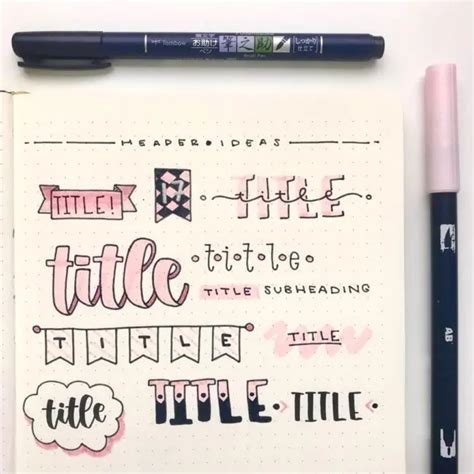 Tombow お助け 筆之助 しっかり仕立て
HEADER • IDEAS
TITLE!
17
TITLE
title
title
title
TITLE SUBHEADING
TITLE
TITLE
title
TITLE
TITLE
AB